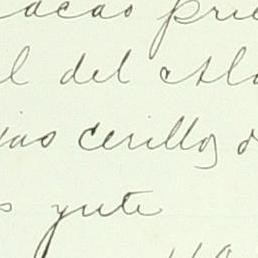 acao prie
l del Atla
jas cerillos d
s yute